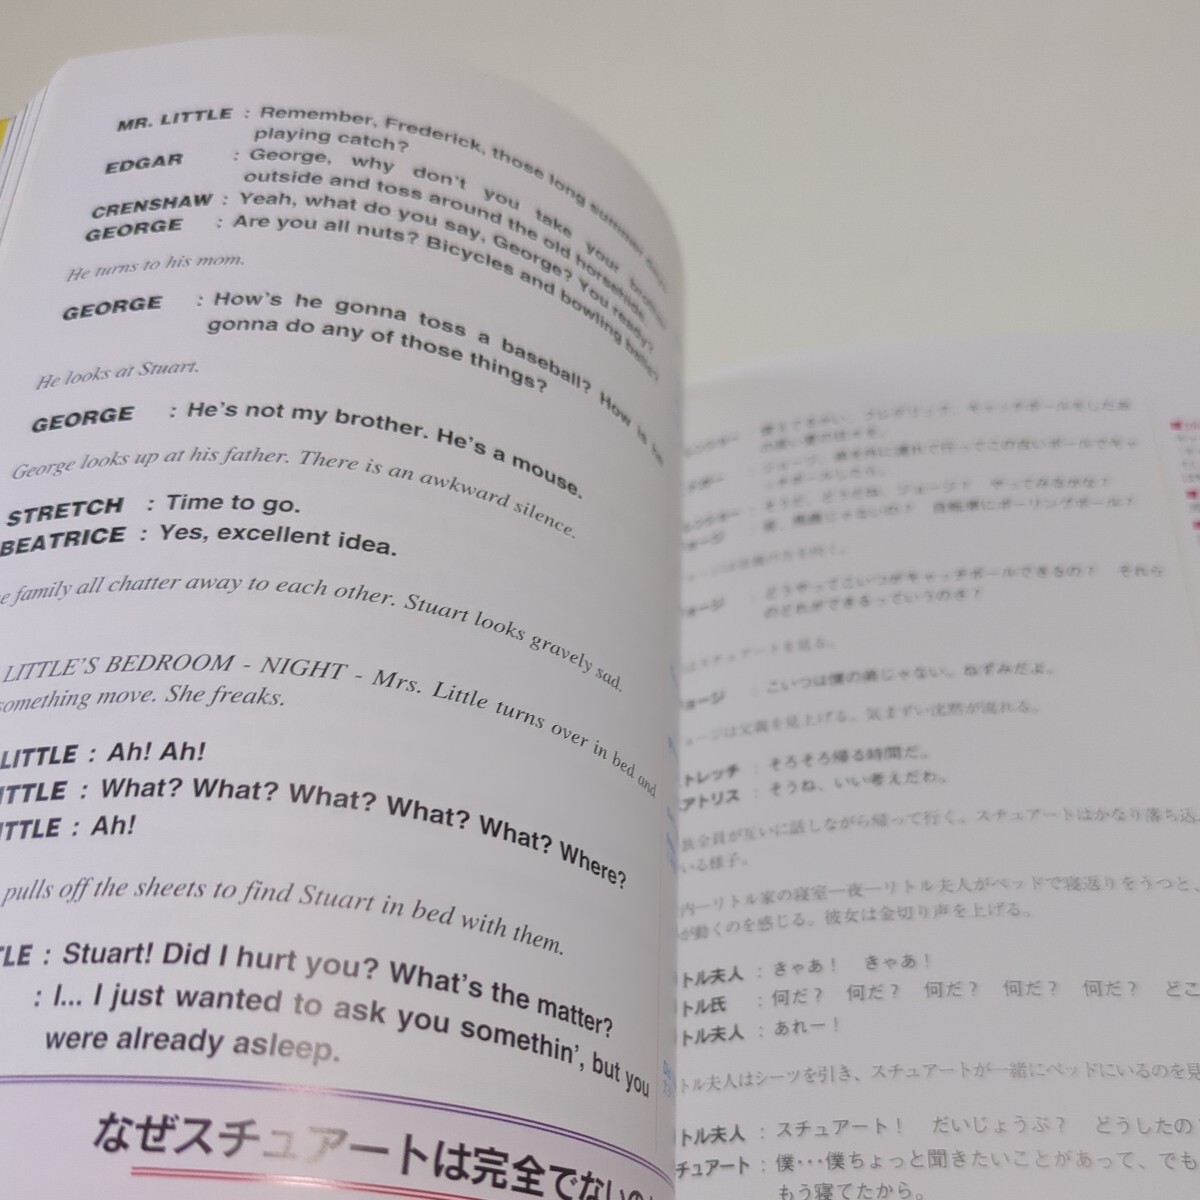 MR. LITTLE : Remember, Frederick, those long summer days
playing catch?
EDGAR : George, why don't you take your brother
outside and toss around the old horsehide.
CRENSHAW : Yeah, what do you say, George? You ready?
GEORGE : Are you all nuts? Bicycles and bowling balls?
He turns to his mom.
GEORGE : How's he gonna toss a baseball? How is he
gonna do any of those things?
He looks at Stuart.
GEORGE : He's not my brother. He's a mouse.
George looks up at his father. There is an awkward silence.
STRETCH : Time to go.
BEATRICE : Yes, excellent idea.
family all chatter away to each other. Stuart looks gravely sad.
LITTLE'S BEDROOM - NIGHT - Mrs. Little turns over in bed and
something move. She freaks.
LITTLE : Ah! Ah!
ITTLE : What? What? What? What? What? Where?
ITTLE : Ah!
pulls off the sheets to find Stuart in bed with them.
TLE : Stuart! Did I hurt you? What's the matter?
: I... I just wanted to ask you somethin', but you
were already asleep.
なぜスチュアートは完全でない
どうやってこいつがキャッチボールできるの？ それら
のどれができるっていうのさ？
はスチュアートを見る。
ョージ : こいつは僕の弟じゃない。ねずみだよ。
ョージは父親を見上げる。気まずい沈黙が流れる。
トレッチ : そろそろ帰る時間だ。
アトリス : そうね、いい考えだわ。
族全員が互いに話しながら帰って行く。スチュアートはかなり落ち込
いる様子。
内―リトル家の寝室―夜―リトル夫人がベッドで寝返りをうつと、
が動くのを感じる。彼女は金切り声を上げる。
トル夫人 : きゃあ！ きゃあ！
トル氏 : 何だ？ 何だ？ 何だ？ 何だ？ 何だ？ どこ
トル夫人 : あれー！
トル夫人はシーツを引き、スチュアートが一緒にベッドにいるのを見
トル夫人 : スチュアート！ だいじょうぶ？ どうしたの
チュアート : 僕・・・僕ちょっと聞きたいことがあって、でも
もう寝てたから。